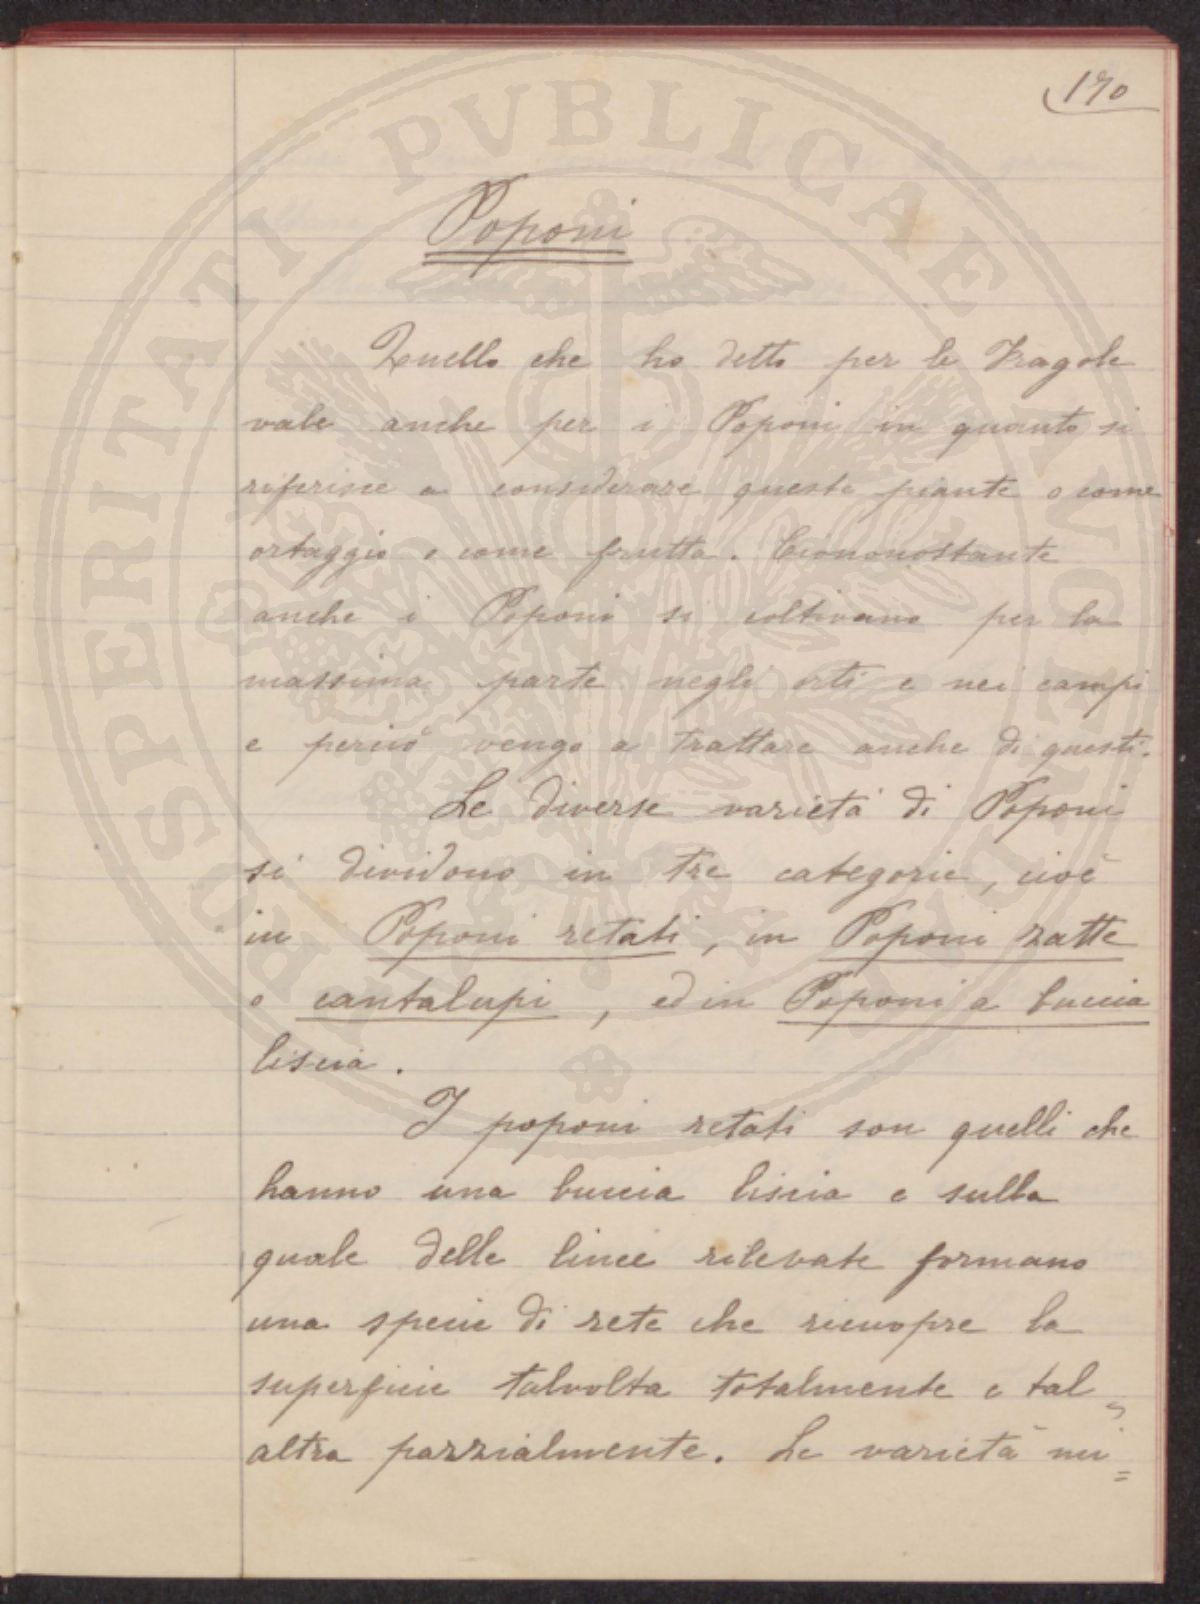 170
Poponi
Quello che ho detto per le Fragole
vale anche per i Poponi in quanto si
riferisce a considerare queste piante o come
ortaggio o come frutta. Ciononostante
anche i Poponi si coltivano per la
massima parte negli orti e nei campi
e perciò vengo a trattare anche di questi.
Le diverse varietà di Poponi
si dividono in tre categorie, cioè
in Poponi retati, in Poponi zatte
o cantalupi, ed in Poponi a buccia
liscia.
I poponi retati son quelli che
hanno una buccia liscia e sulla
quale delle linee rilevate formano
una specie di rete che ricuopre la
superficie talvolta totalmente e tal=
altra parzialmente. Le varietà mi=
PROSPERITATI PVBLICAE AVGENDAE